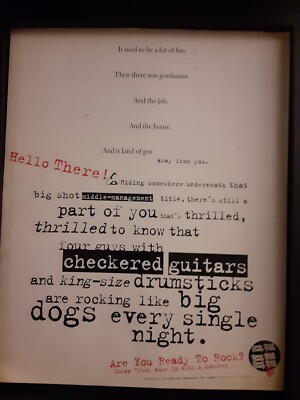 It used to be a lot of fun.
Then there was graduation
And the job.
And the house.
And it kind of got away from you.
Hello There!
Riding somewhere underneath that
big shot middle-management title, there's still a
part of you that's thrilled,
thrilled to know that
four guys with
checkered guitars
and king-size drumsticks
are rocking like big
dogs every single
night.
Are You Ready To Rock?
Cheap Trick Woke Up With A Monster